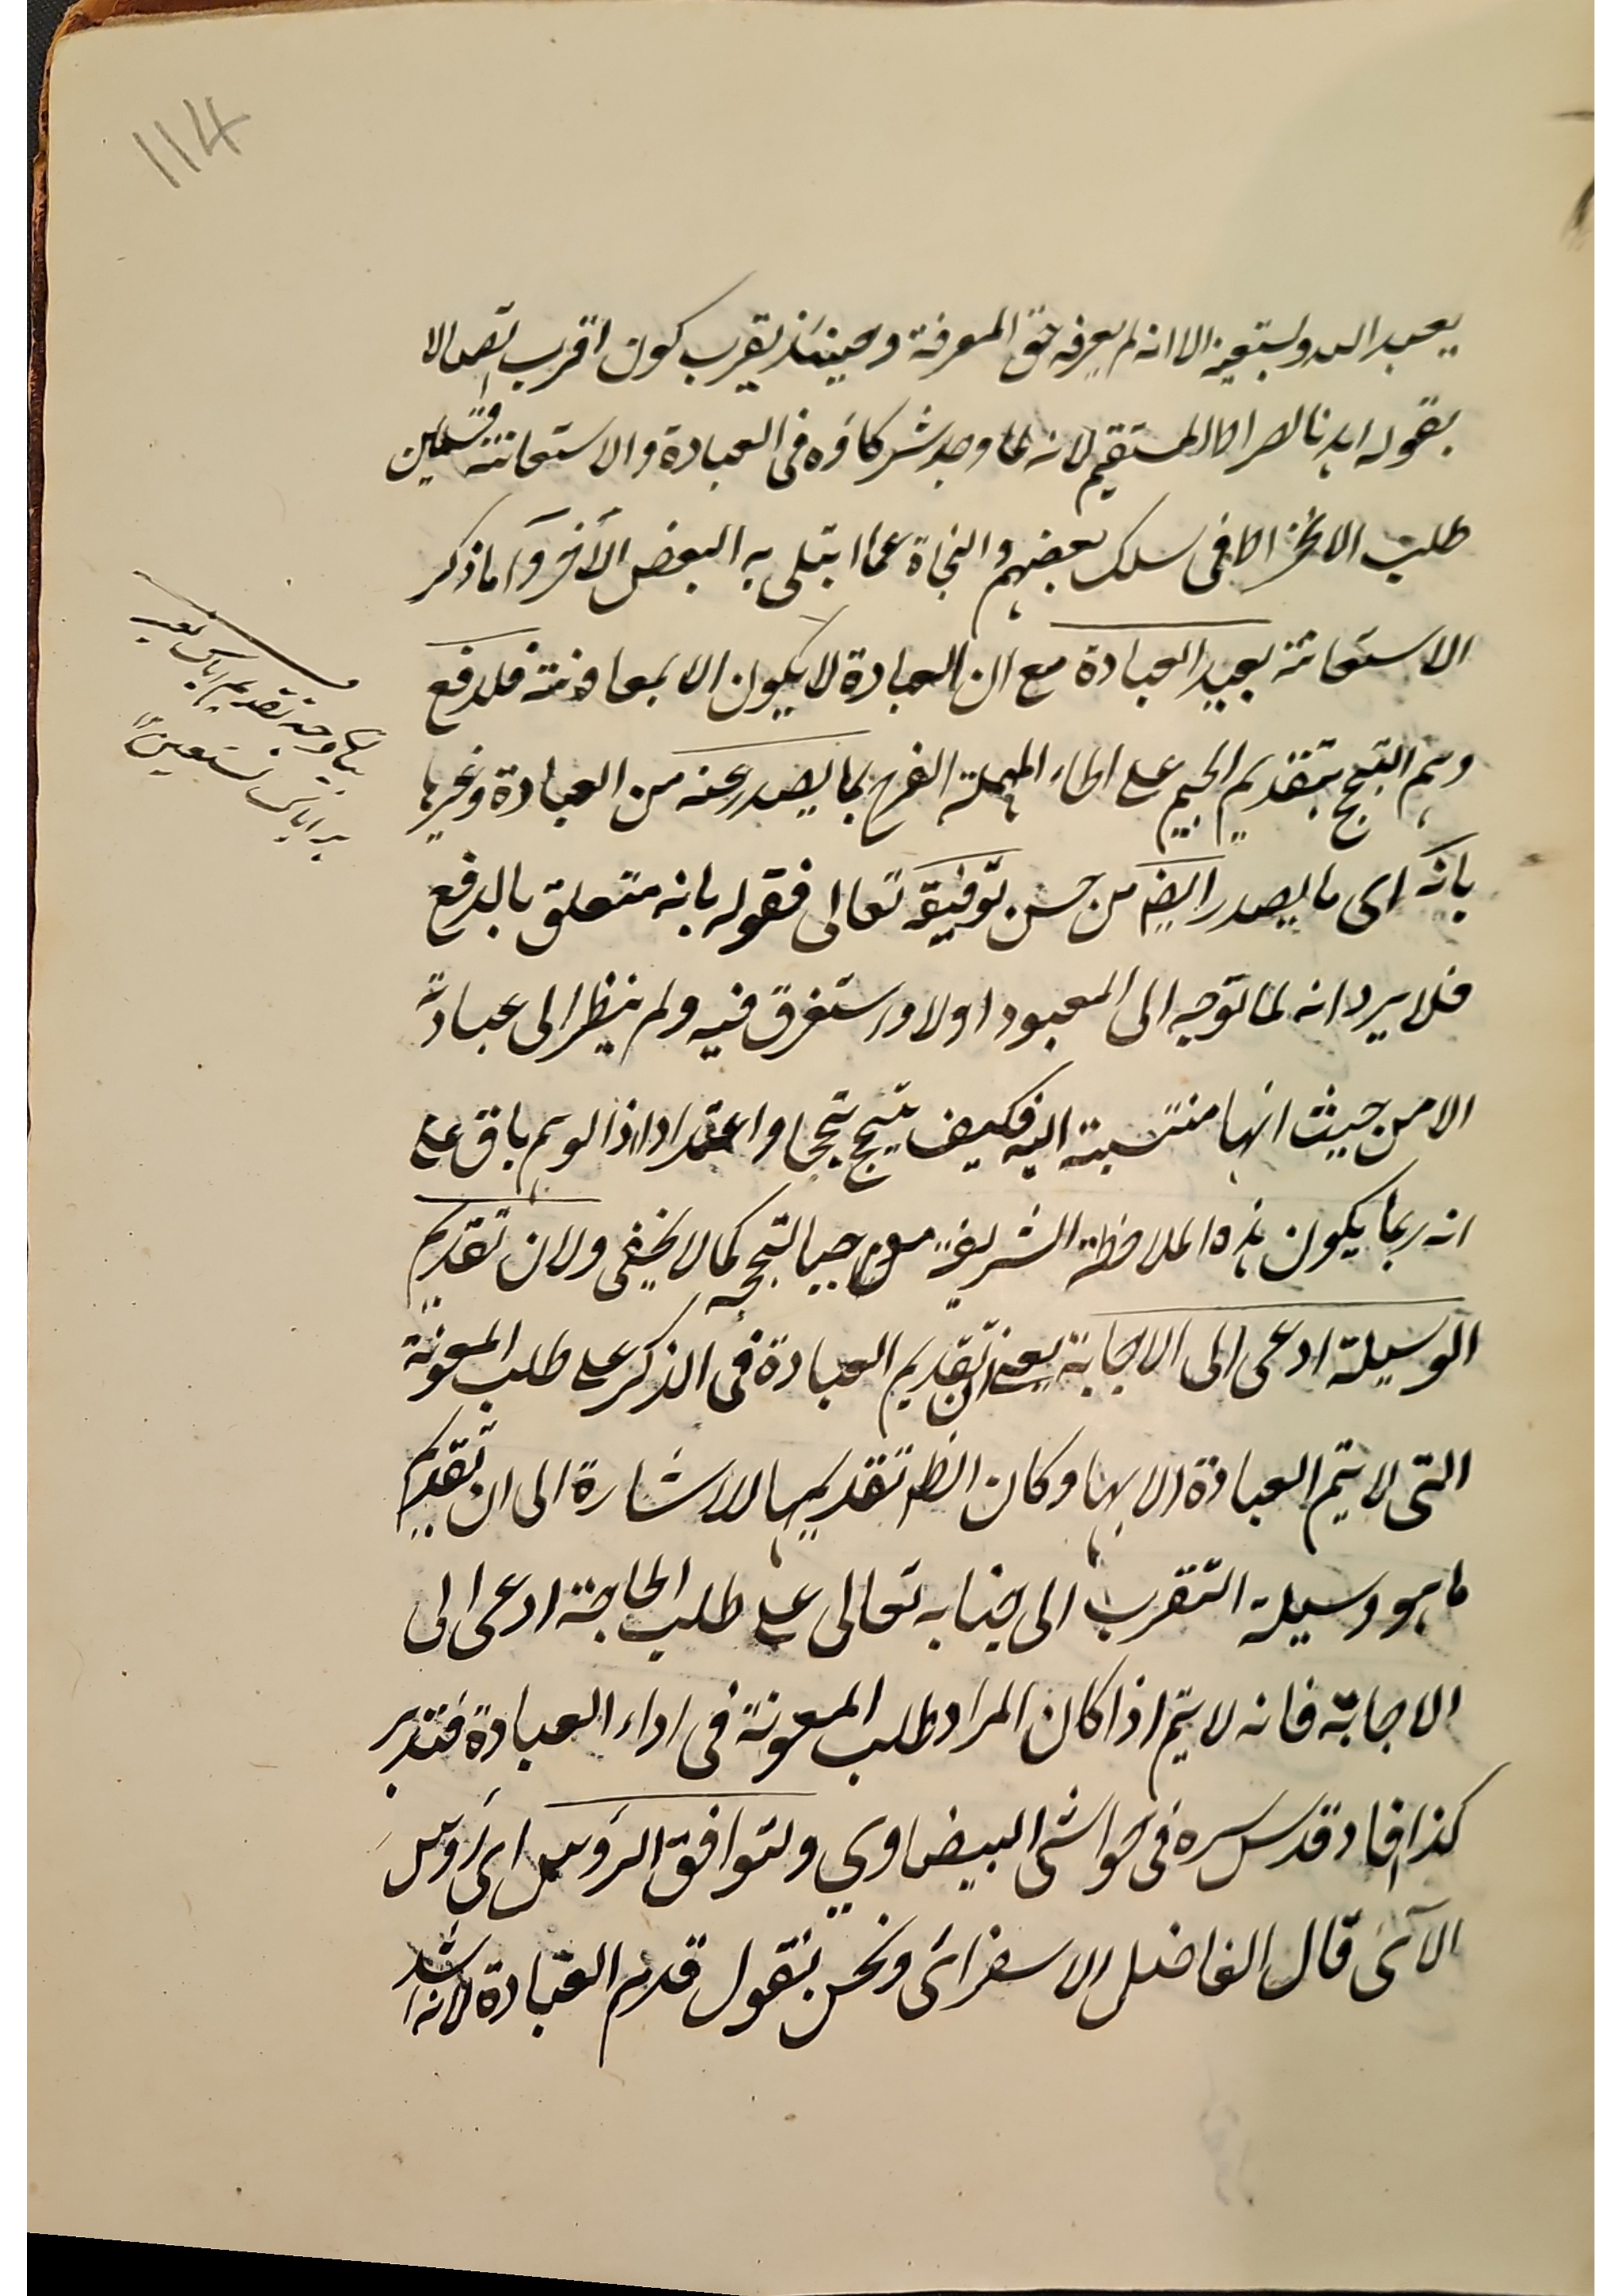 114
يعبد الله ويستعينه الا انه لم يعرفه حق المعرفة وحينئذ يقرب كون اقرب اتصالا
بقوله اهدنا الصراط المستقيم لانه لما وجد شركاؤه في العبادة والاستعانة قسمين
طلب الانخراط في سلك بعضهم والنجاة عما ابتلى به البعض الآخر واما ذكر
الاستعانة بعد العبادة مع ان العبادة لا يكون الا بمعاونته فلدفع
وهم التبجح بتقديم الجيم على الحاء المهملة الفرح بما يصدر عنه من العبادة وغيرها
بانه اى ما يصدر ايضا من حسن توفيقه تعالى فقوله بانه متعلق بالدفع
فلا يرد انه لما توجه الى المعبود اولا واستغرق فيه ولم ينظر الى عبادته
الا من حيث انها منتسبة اليه فكيف يتبجح تبجحا واعتدادا اذ الوهم باق على
انه ربما يكون هذه الملاحظة الشريفة موجبا لتبجحه كما لا يخفى ولان تقديم
الوسيلة ادعى الى الاجابة يعنى ان تقديم العبادة في الذكر على طلب المعونة
التى لا يتم العبادة الا بها وكان الظ تقديمها للاشارة الى ان تقديم
ما هو وسيلة التقرب الى جنابه تعالى على طلب الحاجة ادعى الى
الاجابة فانه لا يتم اذا كان المراد طلب المعونة في اداء العبادة فتدبر
كذا افاد قدس سره في حواشى البيضاوي ولتوافق الرؤس اى رؤس
الآى قال الفاضل الاسفرائى ونحن نقول قدم العبادة لانه اشد
بيان وجه تقديم اياك نعبد
بر اياك نستعين